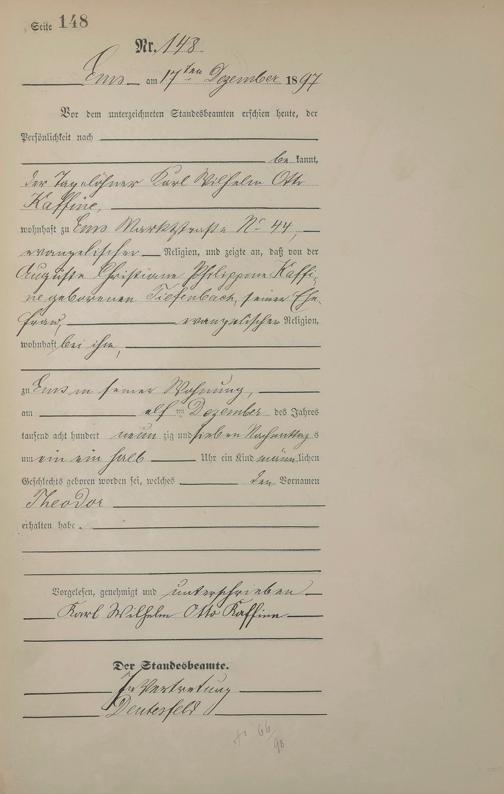 Seite 148
Nr. 148.
Ems am 17ten Dezember 1897
Vor dem unterzeichneten Standesbeamten erschien heute, der
Persönlichkeit nach
be kannt,
der Tagelöhner Karl Wilhelm Otto
Kaffine,
wohnhaft zu Ems Marktstraße No 44,
evangelischer Religion, und zeigte an, daß von der
Auguste Christiane Philippine Kaffi-
ne geborenen Tiefenbach, seiner Ehe-
frau, evangelischer Religion,
wohnhaft bei ihm,
zu Ems in seiner Wohnung,
am elf ten Dezember des Jahres
tausend acht hundert neun zig und sieben Nachmittag s
um ein ein halb Uhr ein Kind männ lichen
Geschlechts geboren worden sei, welches den Vornamen
Theodor
erhalten habe.
Vorgelesen, genehmigt und unterschrieben
Karl Wilhelm Otto Kaffine
Der Standesbeamte.
In Vertretung
66/98